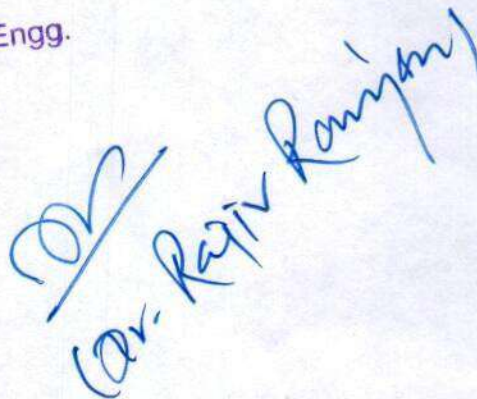 Engg.
(Dr. Rajiv Ranjan)